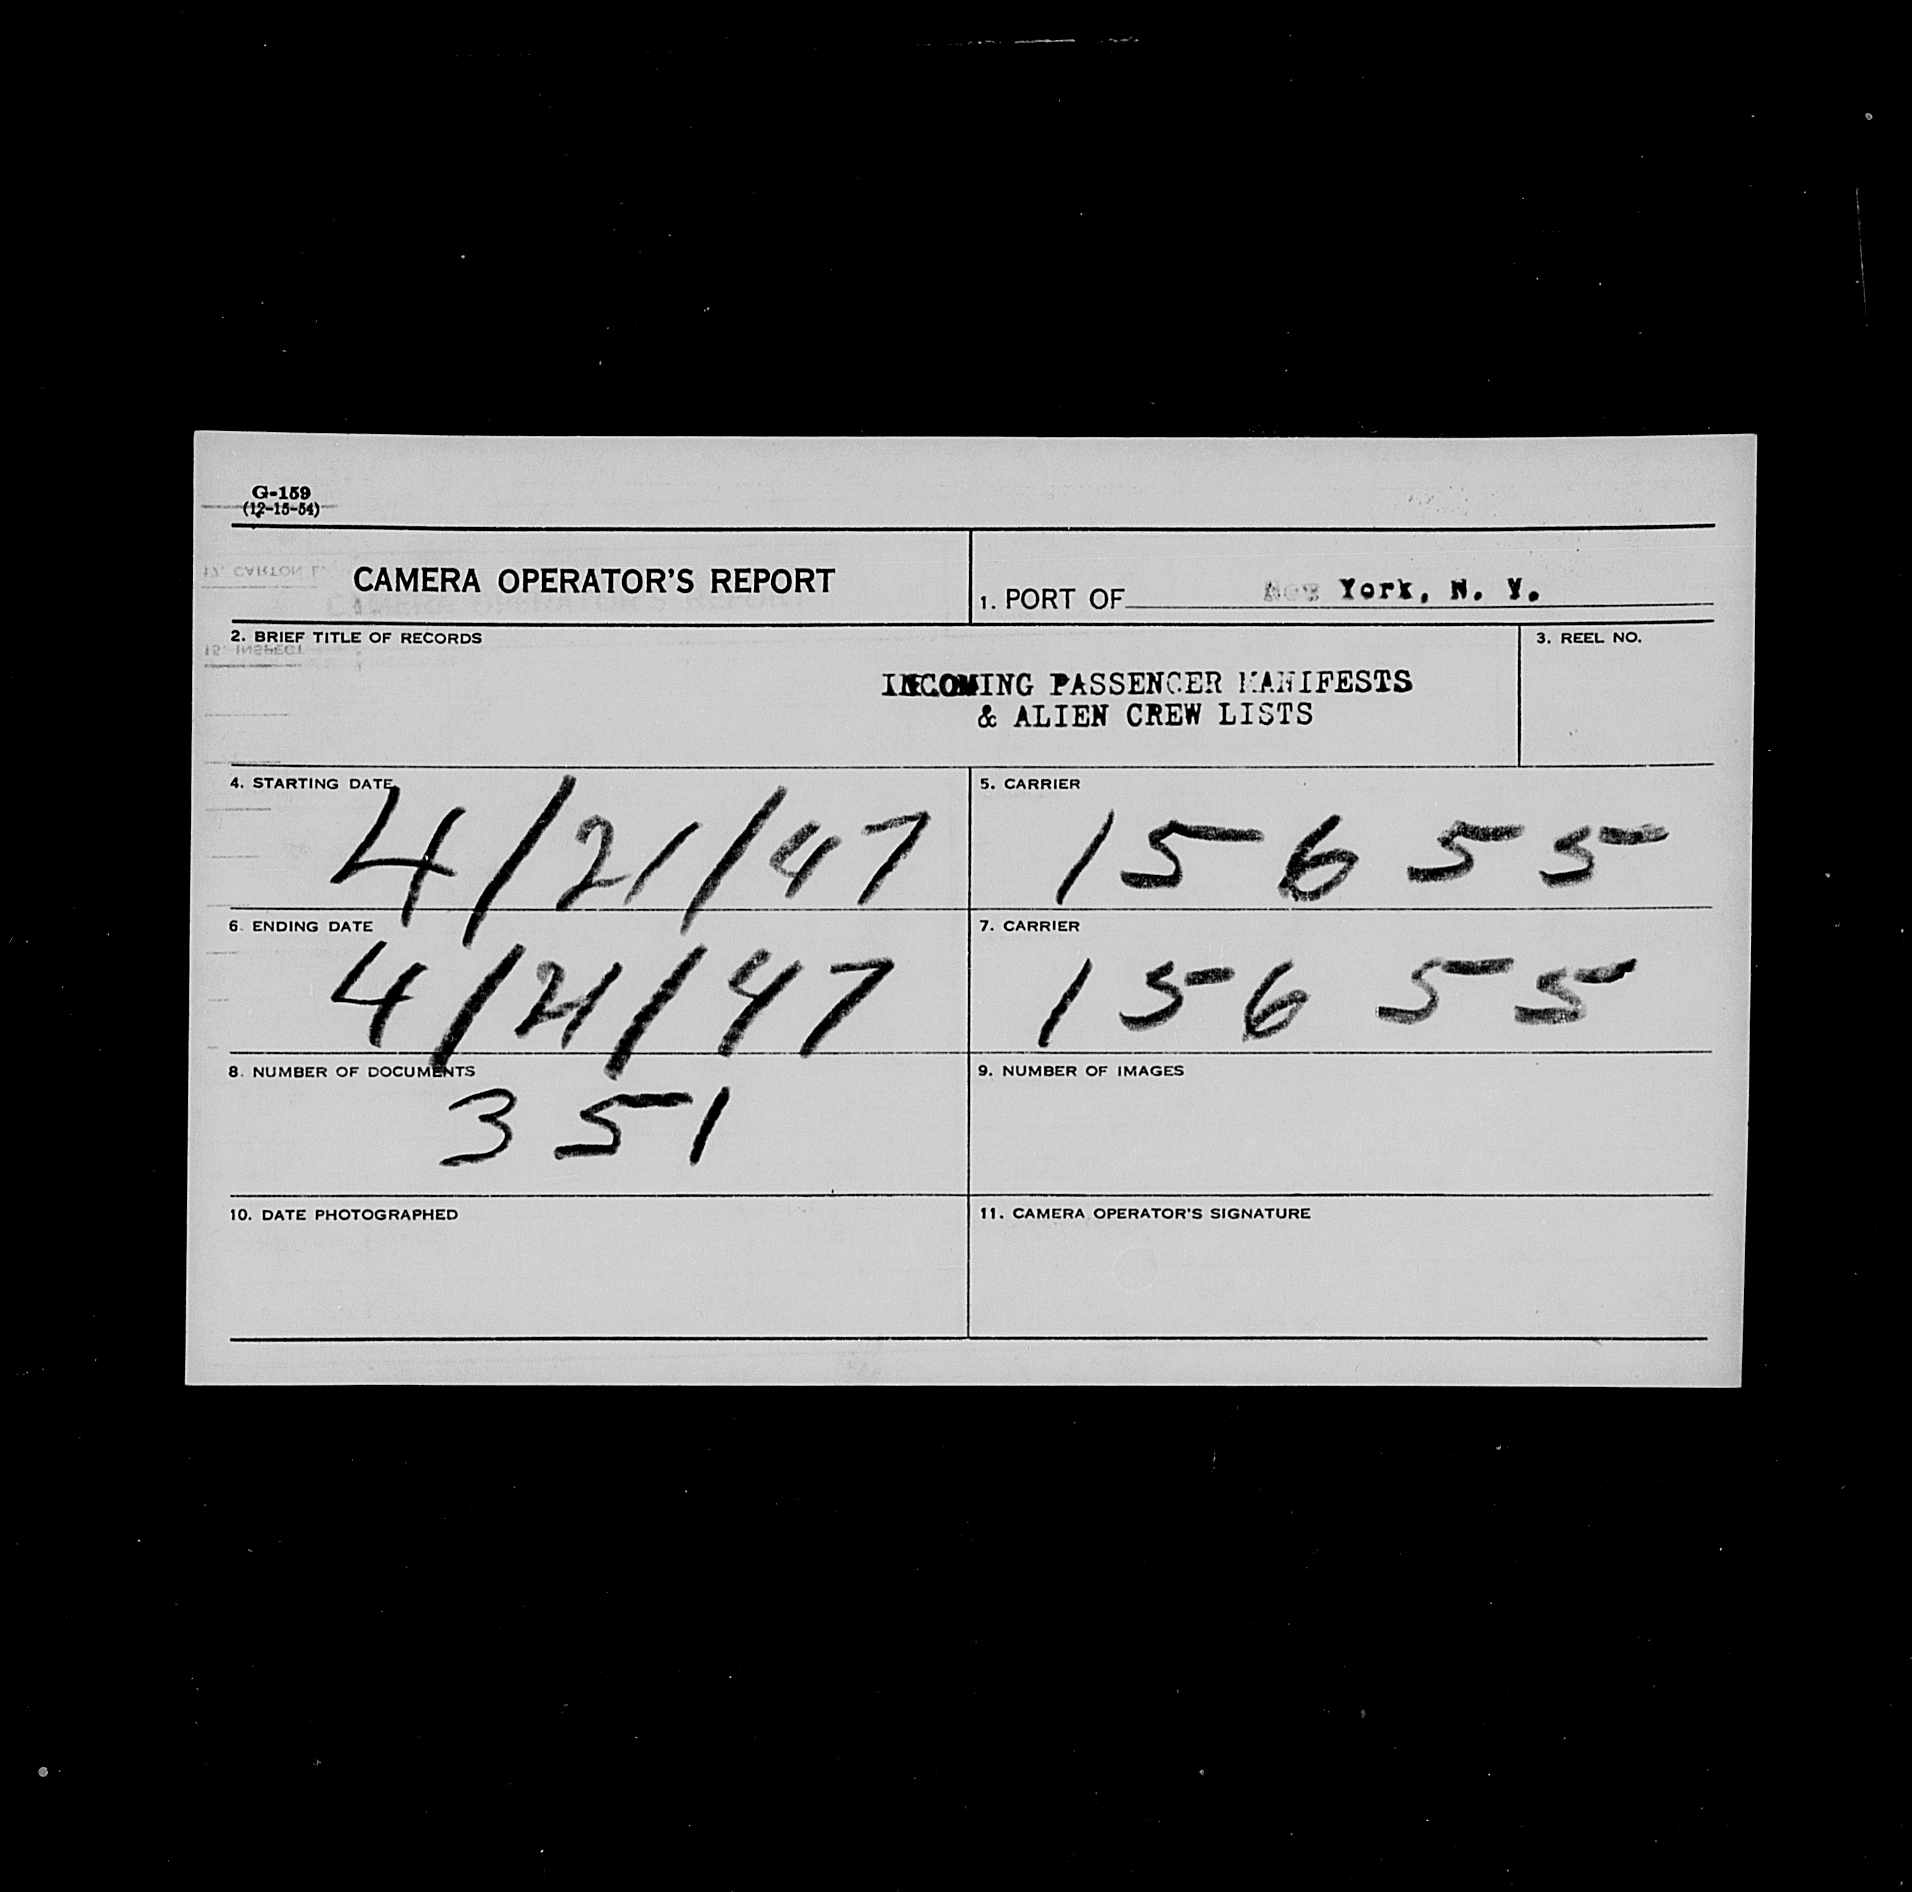 G-159
(12-15-54)
CAMERA OPERATOR'S REPORT
1. PORT OF New York, N. Y.
2. BRIEF TITLE OF RECORDS
3. REEL NO.
INCOMING PASSENGER MANIFESTS
& ALIEN CREW LISTS
4. STARTING DATE
5. CARRIER
4/21/47
15655
6. ENDING DATE
7. CARRIER
4/21/47
15655
8. NUMBER OF DOCUMENTS
9. NUMBER OF IMAGES
351
10. DATE PHOTOGRAPHED
11. CAMERA OPERATOR'S SIGNATURE